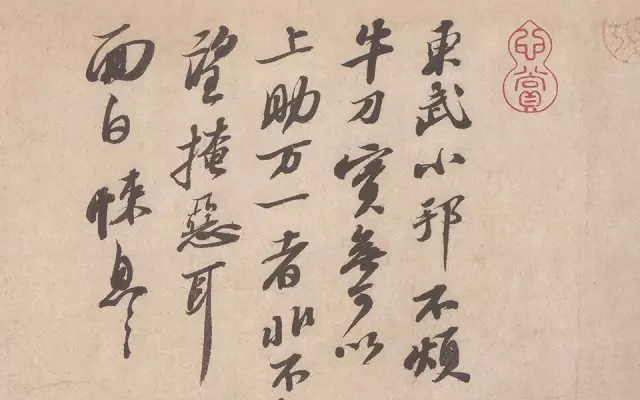 心賞
東武小邦不煩
牛刀實無可以
上助万一者非不
望掩惡耳
面白悚息々